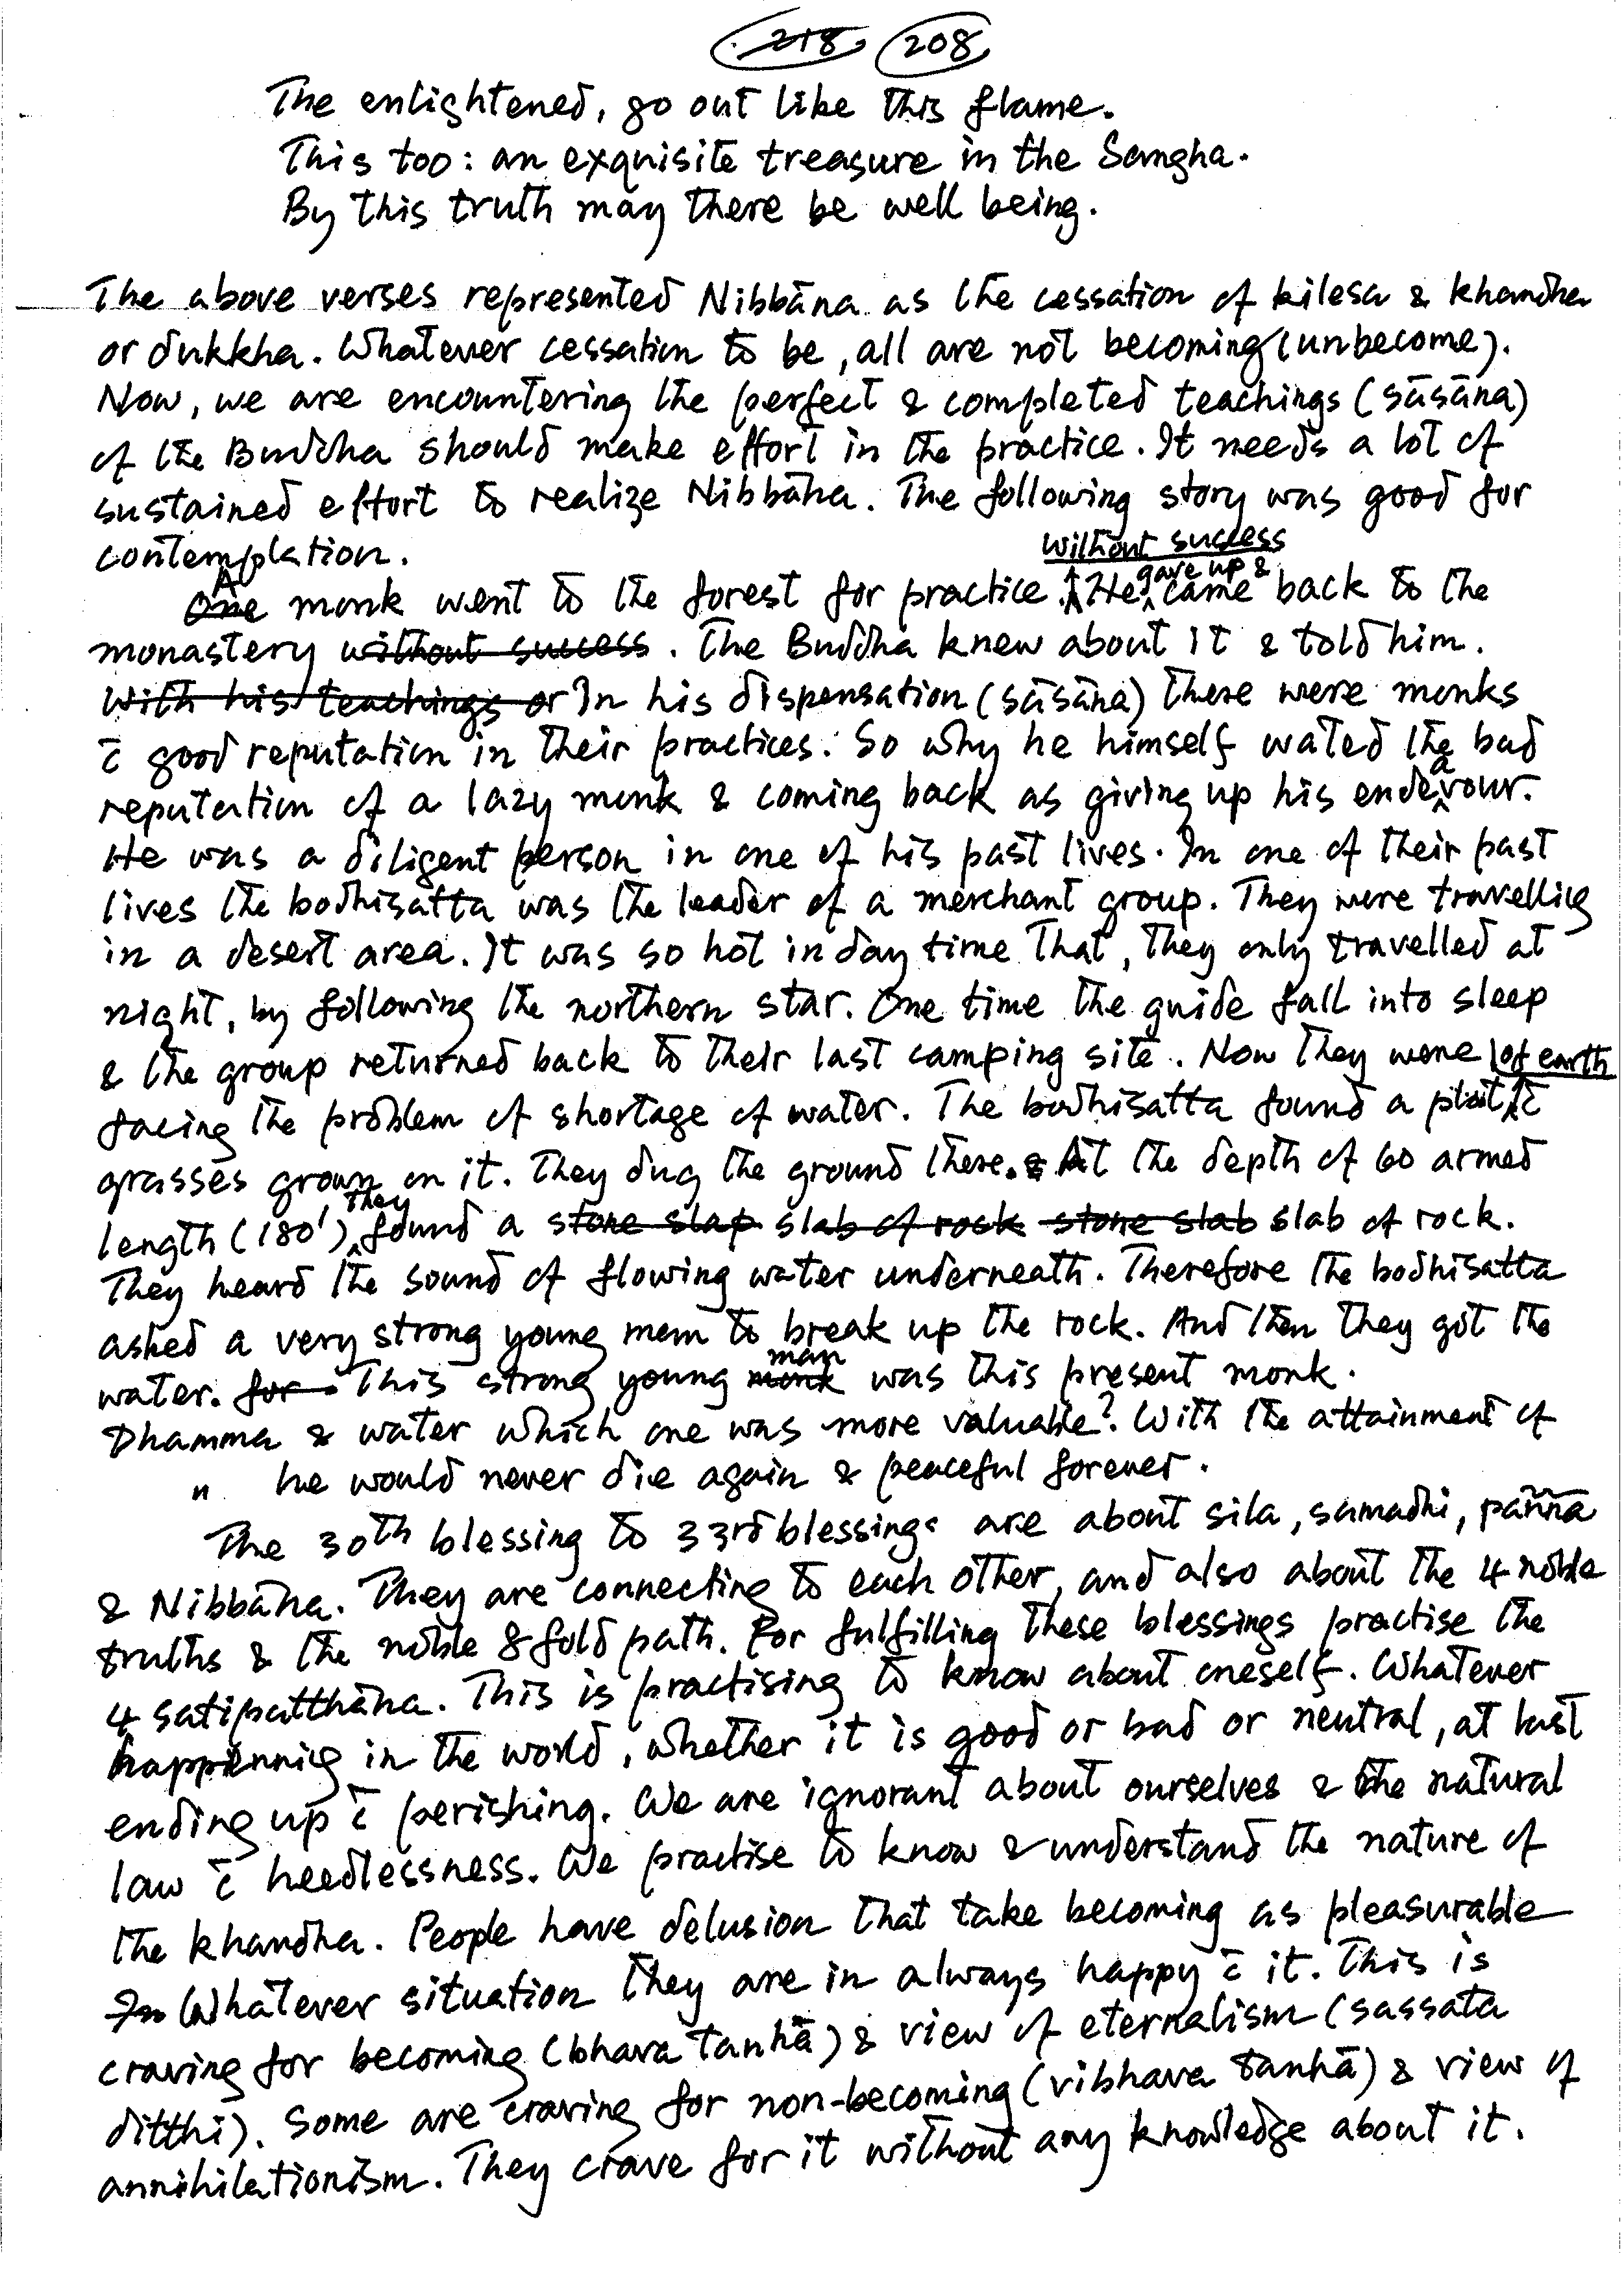 218 208
The enlightened, go out like this flame.
This too: an exquisite treasure in the Sangha.
By this truth may there be well being.
The above verses represented Nibbāna as the cessation of kilesa & khandha
or dukkha. Whatever cessation to be, all are not becoming (unbecome).
Now, we are encountering the perfect & completed teachings (sāsāna)
of the Buddha should make effort in the practice. It needs a lot of
sustained effort to realize Nibbāna. The following story was good for
contemplation.
without success
One A monk went to the forest for practice. He gave up & came back to the
monastery without success. The Buddha knew about it & told him.
With his teachings or In his dispensation (sāsāna) there were monks
c̄ good reputation in their practices. So why he himself wated the bad
reputation of a lazy monk & coming back as giving up his endeavour.
He was a diligent person in one of his past lives. In one of their past
lives the bodhisatta was the leader of a merchant group. They were travelling
in a desert area. It was so hot in day time that, they only travelled at
night, by following the northern star. One time the guide fall into sleep
& the group returned back to their last camping site. Now they were
facing the problem of shortage of water. The bodhisatta found a plot of earth c̄
grasses grown on it. They dug the ground there. & At the depth of 60 armed
length (180') they found a stone slap slab of rock stone slab slab of rock.
They heard the sound of flowing water underneath. Therefore the bodhisatta
asked a very strong young mem to break up the rock. And then they got the
water. for This strong young monk man was this present monk.
Dhamma & water which one was more valuable? With the attainment of
" he would never die again & peaceful forever.
The 30th blessing to 33rd blessings are about sila, samadhi, pañña
& Nibbāna. They are connecting to each other, and also about the 4 noble
truths & the noble 8 fold path. For fulfilling these blessings practise the
4 satipatthāna. This is practising to know about oneself. Whatever
happennig in the world, whether it is good or bad or neutral, at last
ending up c̄ perishing. We are ignorant about ourselves & the natural
law c̄ heedlessness. We practise to know & understand the nature of
the khandha. People have delusion that take becoming as pleasurable
In Whatever situation they are in always happy c̄ it. This is
craving for becoming (bhava tanhā) & view of eternalism (sassata
ditthi). Some are craving for non-becoming (vibhava tanhā) & view of
annihilationism. They crave for it without any knowledge about it.